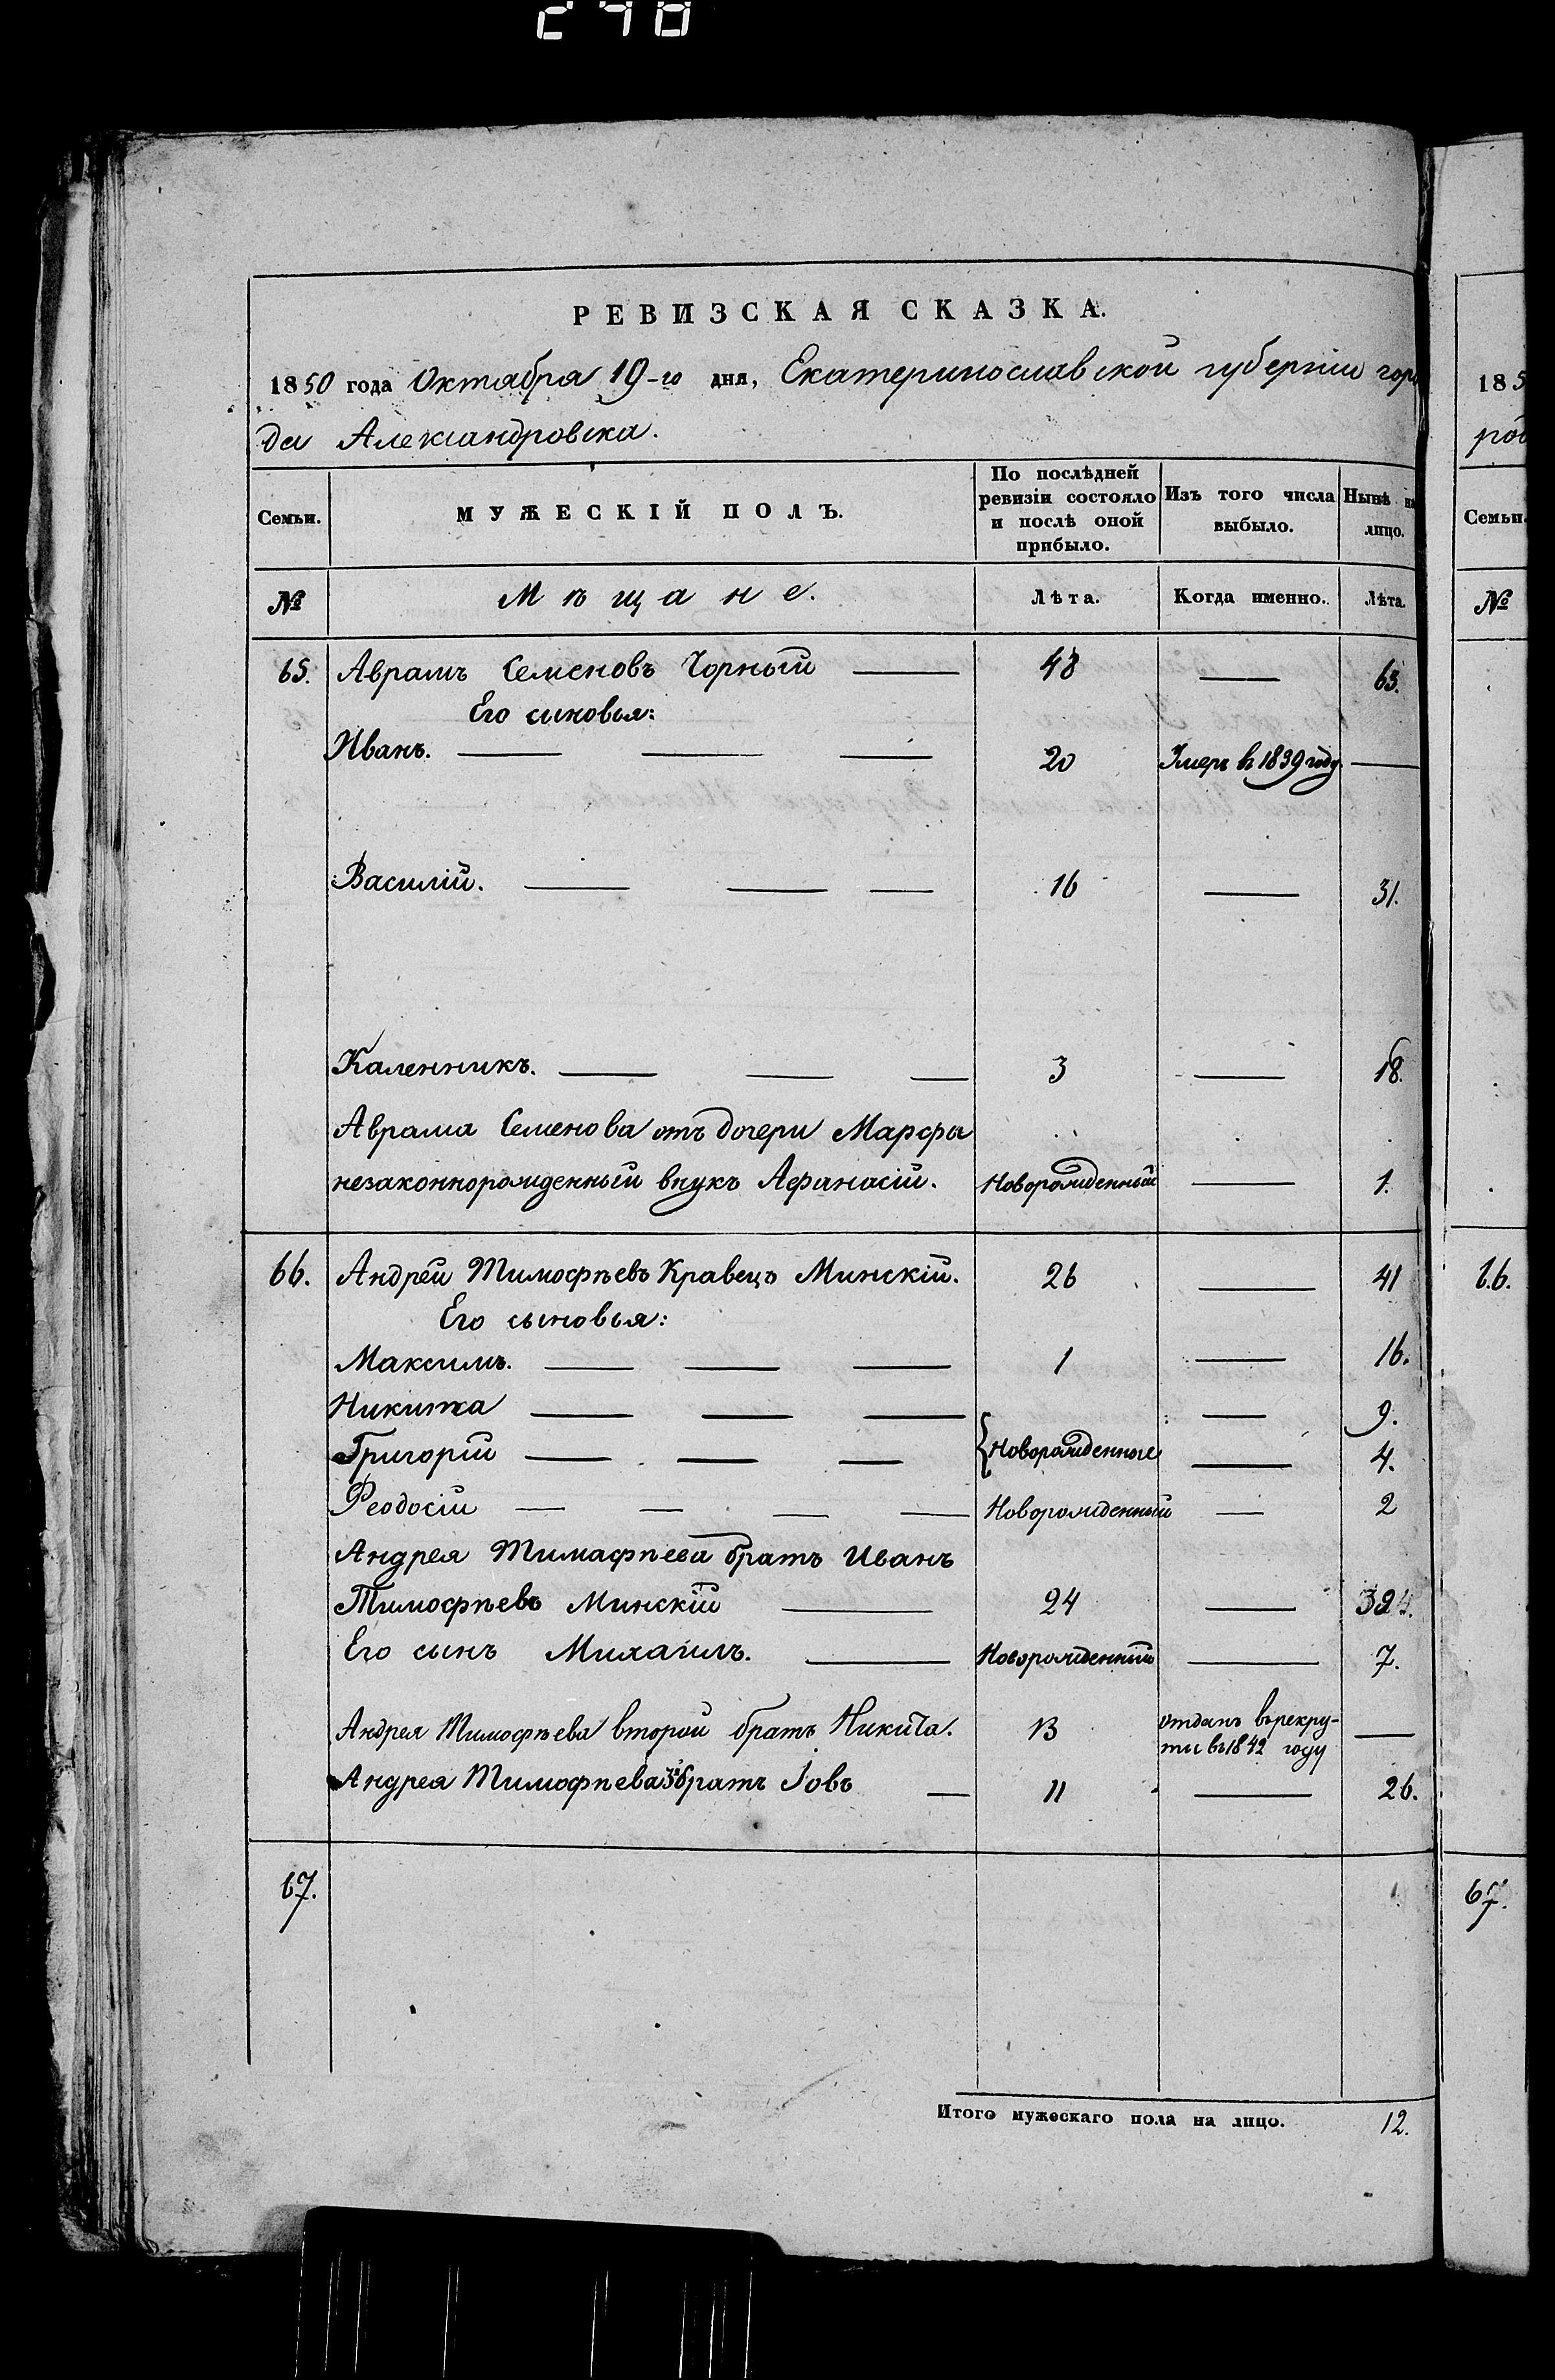 РЕВИЗСКАЯ СКАЗКА.
1850 года Октября 19-го дня, Екатеринославской губерніи горо
да Александровска.
Семьи. МУЖЕСКІЙ ПОЛЪ. По послѣдней ревизіи состояло и послѣ оной прибыло. Изъ того числа выбыло. Нынѣ на лицо.
№ Мѣщане. Лѣта. Когда именно. Лѣта.
65. Аврамъ Семеновъ Чорный — 48 — 63.
Его синовья:
Иванъ. — — — 20 Умеръ въ 1839 году —
Василій. — — — 16 — 31.
Каленникъ. — — — 3 — 18.
Аврама Семенова отъ дочери Марфы
незаконнорожденный внукъ Афанасій. Новорожденный — 1.
66. Андрей Тимофѣевъ Кравецъ Минскій. 26 — 41
Его сыновья:
Максимъ. — — — 1 — 16.
Никитка — — — — 9.
Григорій — — — {Новорожденные — 4.
Ѳеодосій — — — — Новорожденный — 2
Андрея Тимафѣева братъ Иванъ
Тимофѣевъ Минскій — 24 —
Его сынъ Михаилъ. — Новорожденный — 7.
Андрея Тимофѣева второй братъ Никита. 13 отданъ въ рекру-
ты въ 1842 году —
Андрея Тимофѣева 3й братъ Іовъ — 11 — 26.
67.
Итого мужескаго пола на лицо. 12.
185
ров
Семьи.
№
66.
67.